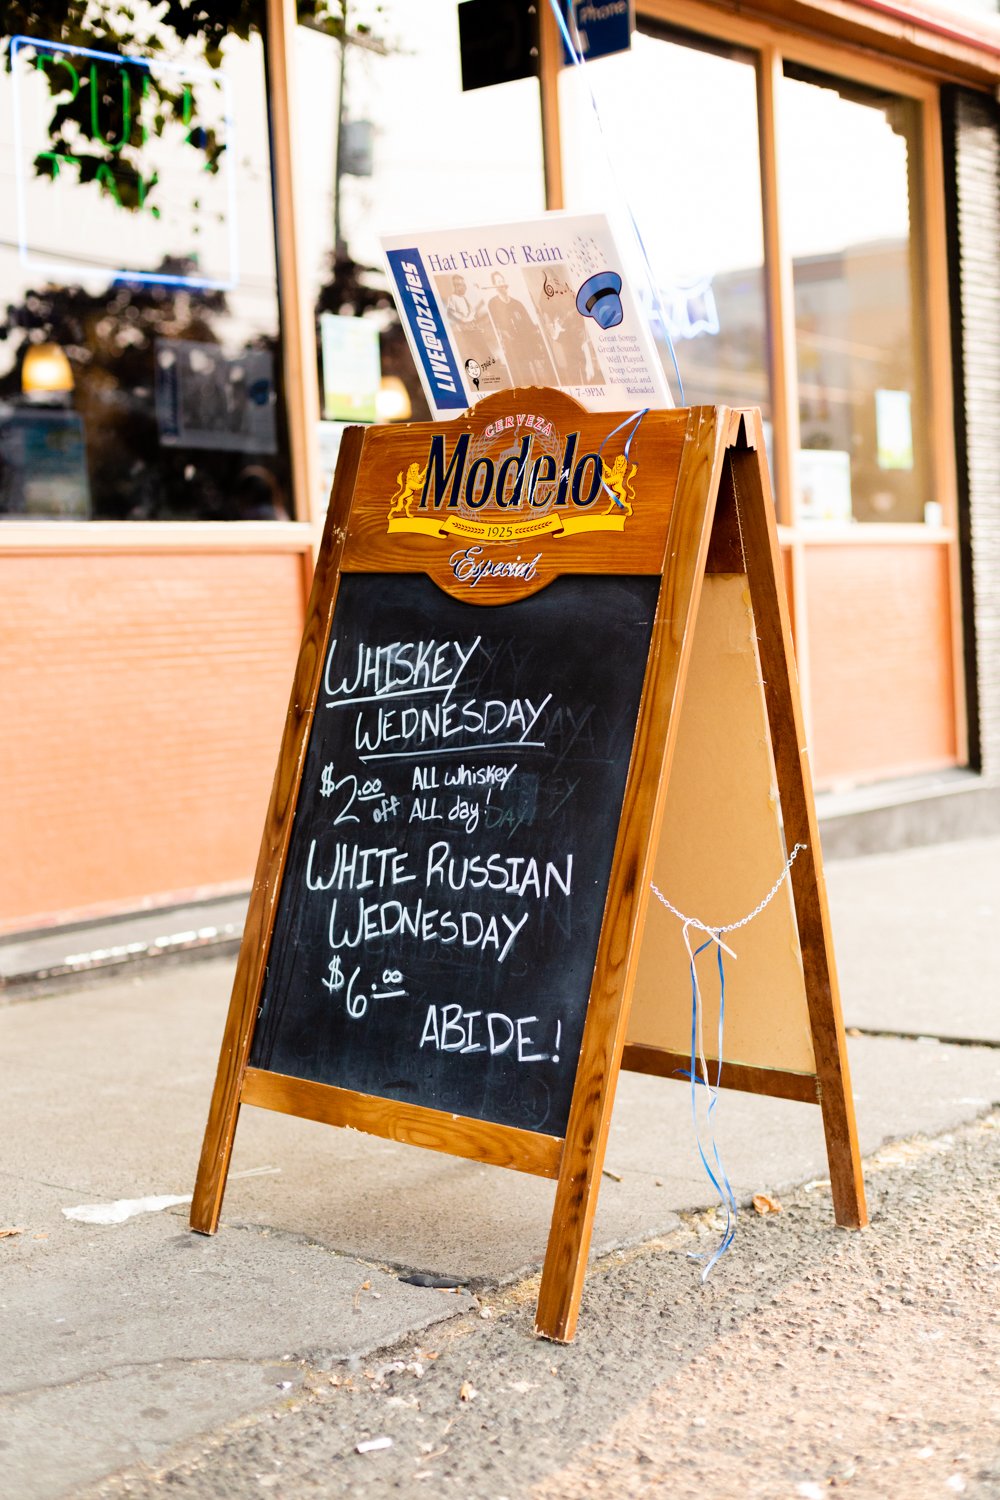 Phone
PULL
TAB
Hat Full Of Rain
LIVE@OZZIES
Great Songs
Great Sounds
Well Played
Deep Covers
Rebooted and
Reloaded
7-9PM
CERVEZA
Modelo
1925
Especial
WHISKEY
WEDNESDAY
$2.00 off ALL whiskey
ALL day!
WHITE RUSSIAN
WEDNESDAY
$6.00
ABIDE!